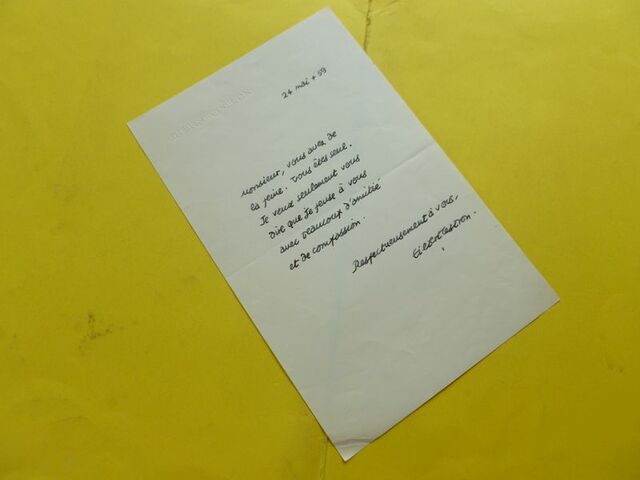 24 mai + 59
Monsieur, vous avez de
la peine. Vous êtes seul.
Je veux seulement vous
Dire que Je pense à vous
avec beaucoup d'amitié
et de compassion.
Respectueusement à vous,